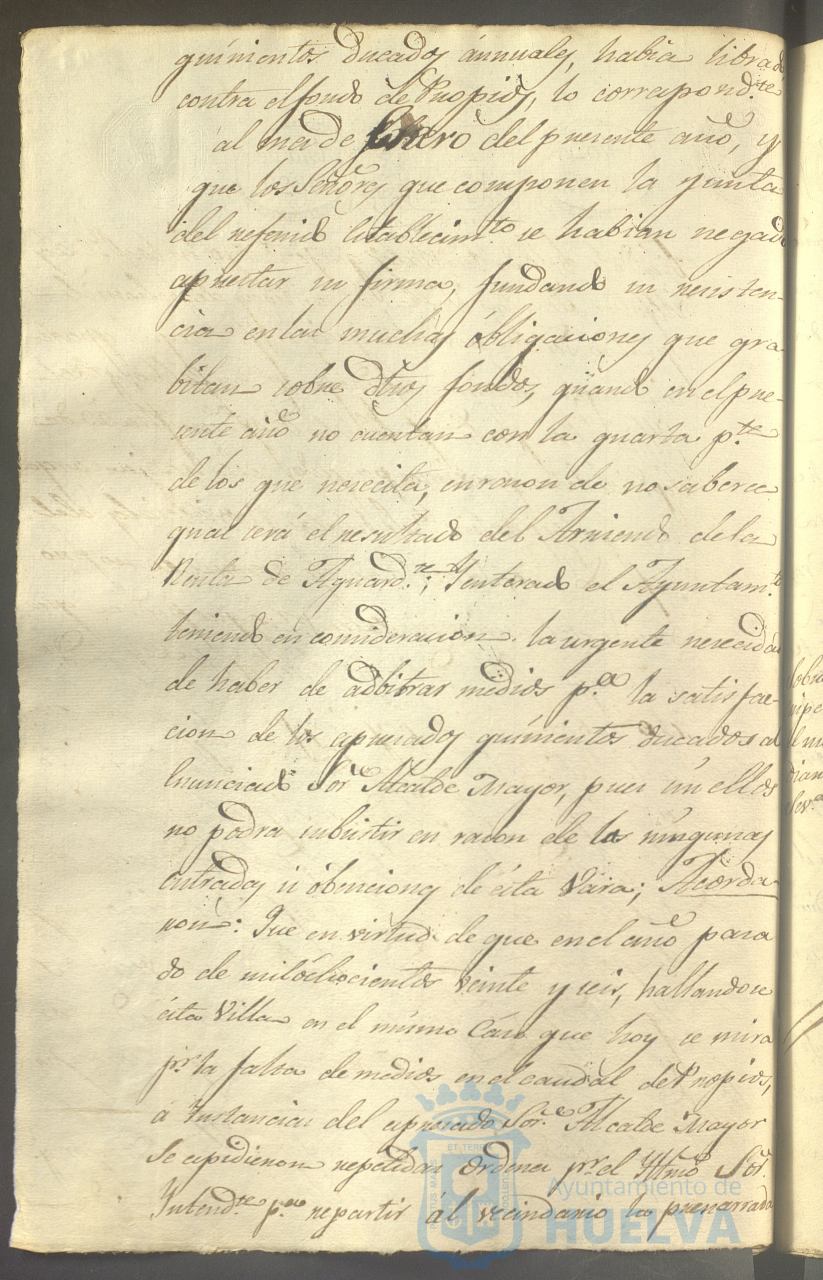 quinientos ducados ánnuales, habia librado
contra el fondo de Propios, lo correspond.te
al mes de Enero del presente año, y
que los Señores que componen la Junta
del referido Establecim.to se habian negado
aprestar su firma, fundando su resisten-
cia en las muchas óbligaciones que gra-
bitan sobre dhos fondos, quando en el pre-
sente año no cuentan con la quarta p.te
de los que necesita, en razon de no saberse
qual será el resultado del Arriendo de la
Renta de Aguard.te; Y enterado el Ayuntam.to
teniendo en consideracion la urgente necesidad
de haber de adbitrar medios p.a la satisfac-
cion de los apresados quinientos ducados al
Enunciado Sor. Alcalde Mayor, pues sin ellos
no podra subsistir en razon de las ningunas
entradas ii óbenciones de ésta Vara; Acorda-
ron: Que en virtud de que en el año pasa
do de mil óchocientos veinte y seis, hallandose
ésta Villa en el mismo Caso que hoy se mira
pr. la falta de medios en el caudal de Propios,
á Instancias del apresado Sor. Alcalde Mayor
Se expidieron repetidas ordenes pr. el Yltmo Sor.
Intend.te p.a repartir ál vecindario la prenarrada
Ayuntamiento de
HUELVA